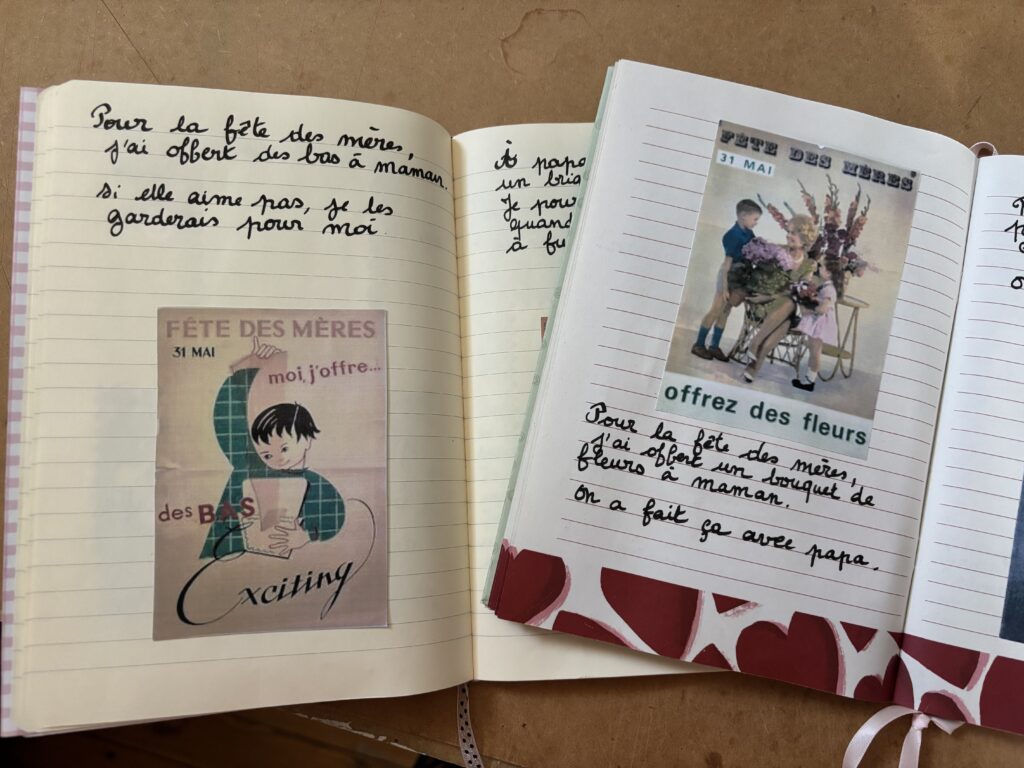 Pour la fête des mères,
j'ai offert des bas à maman.
si elle aime pas, je les
garderais pour moi
FÊTE DES MÈRES
31 MAI
moi, j'offre...
des BAS
Exciting
À papa
un
Je
quand
à
FÊTE DES MÈRES
31 MAI
offrez des fleurs
Pour la fête des mères,
j'ai offert un bouquet de
fleurs à maman.
on a fait ça avec papa.